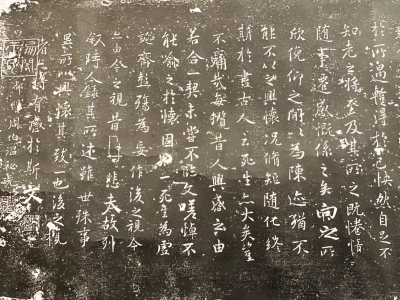 於所遇暫得於己快然自足不
知老之將至及其所之既惓情
隨事遷感慨係之矣向之所
欣俛仰之間以為陳迹猶不
能不以之興懷況脩短隨化終
期於盡古人云死生亦大矣豈
不痛哉每攬昔人興感之由
若合一契未嘗不臨文嗟悼不
能喻之於懷固知一死生為虛
誕齊彭殤為妄作後之視今
亦由今之視昔悲夫故列
敘時人錄其所述雖世殊事
異所以興懷其致一也後之攬
者亦將有感於斯文